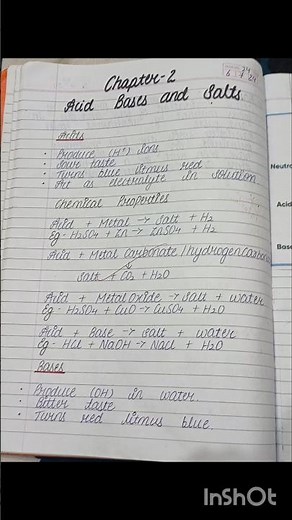 Chapter-2
Acid Bases and Salts
Acids
• Produce (H+) ions
• Sour taste
• Turns blue litmus red
• Act as electrolyte in solution
Chemical Properties
Acid + Metal → Salt + H2
Eg - H2SO4 + Zn → ZnSO4 + H2
Acid + Metal Carbonate / hydrogencarbon
Salt + CO2 + H2O
Acid + Metal Oxide → Salt + water
Eg - H2SO4 + CuO → CuSO4 + H2O
Acid + Base → Salt + water
Eg - HCl + NaOH → NaCl + H2O
Bases
• Produce (OH) in water.
• Bitter taste
• Turns red litmus blue.
Neutra
Acid
Base
InShOt